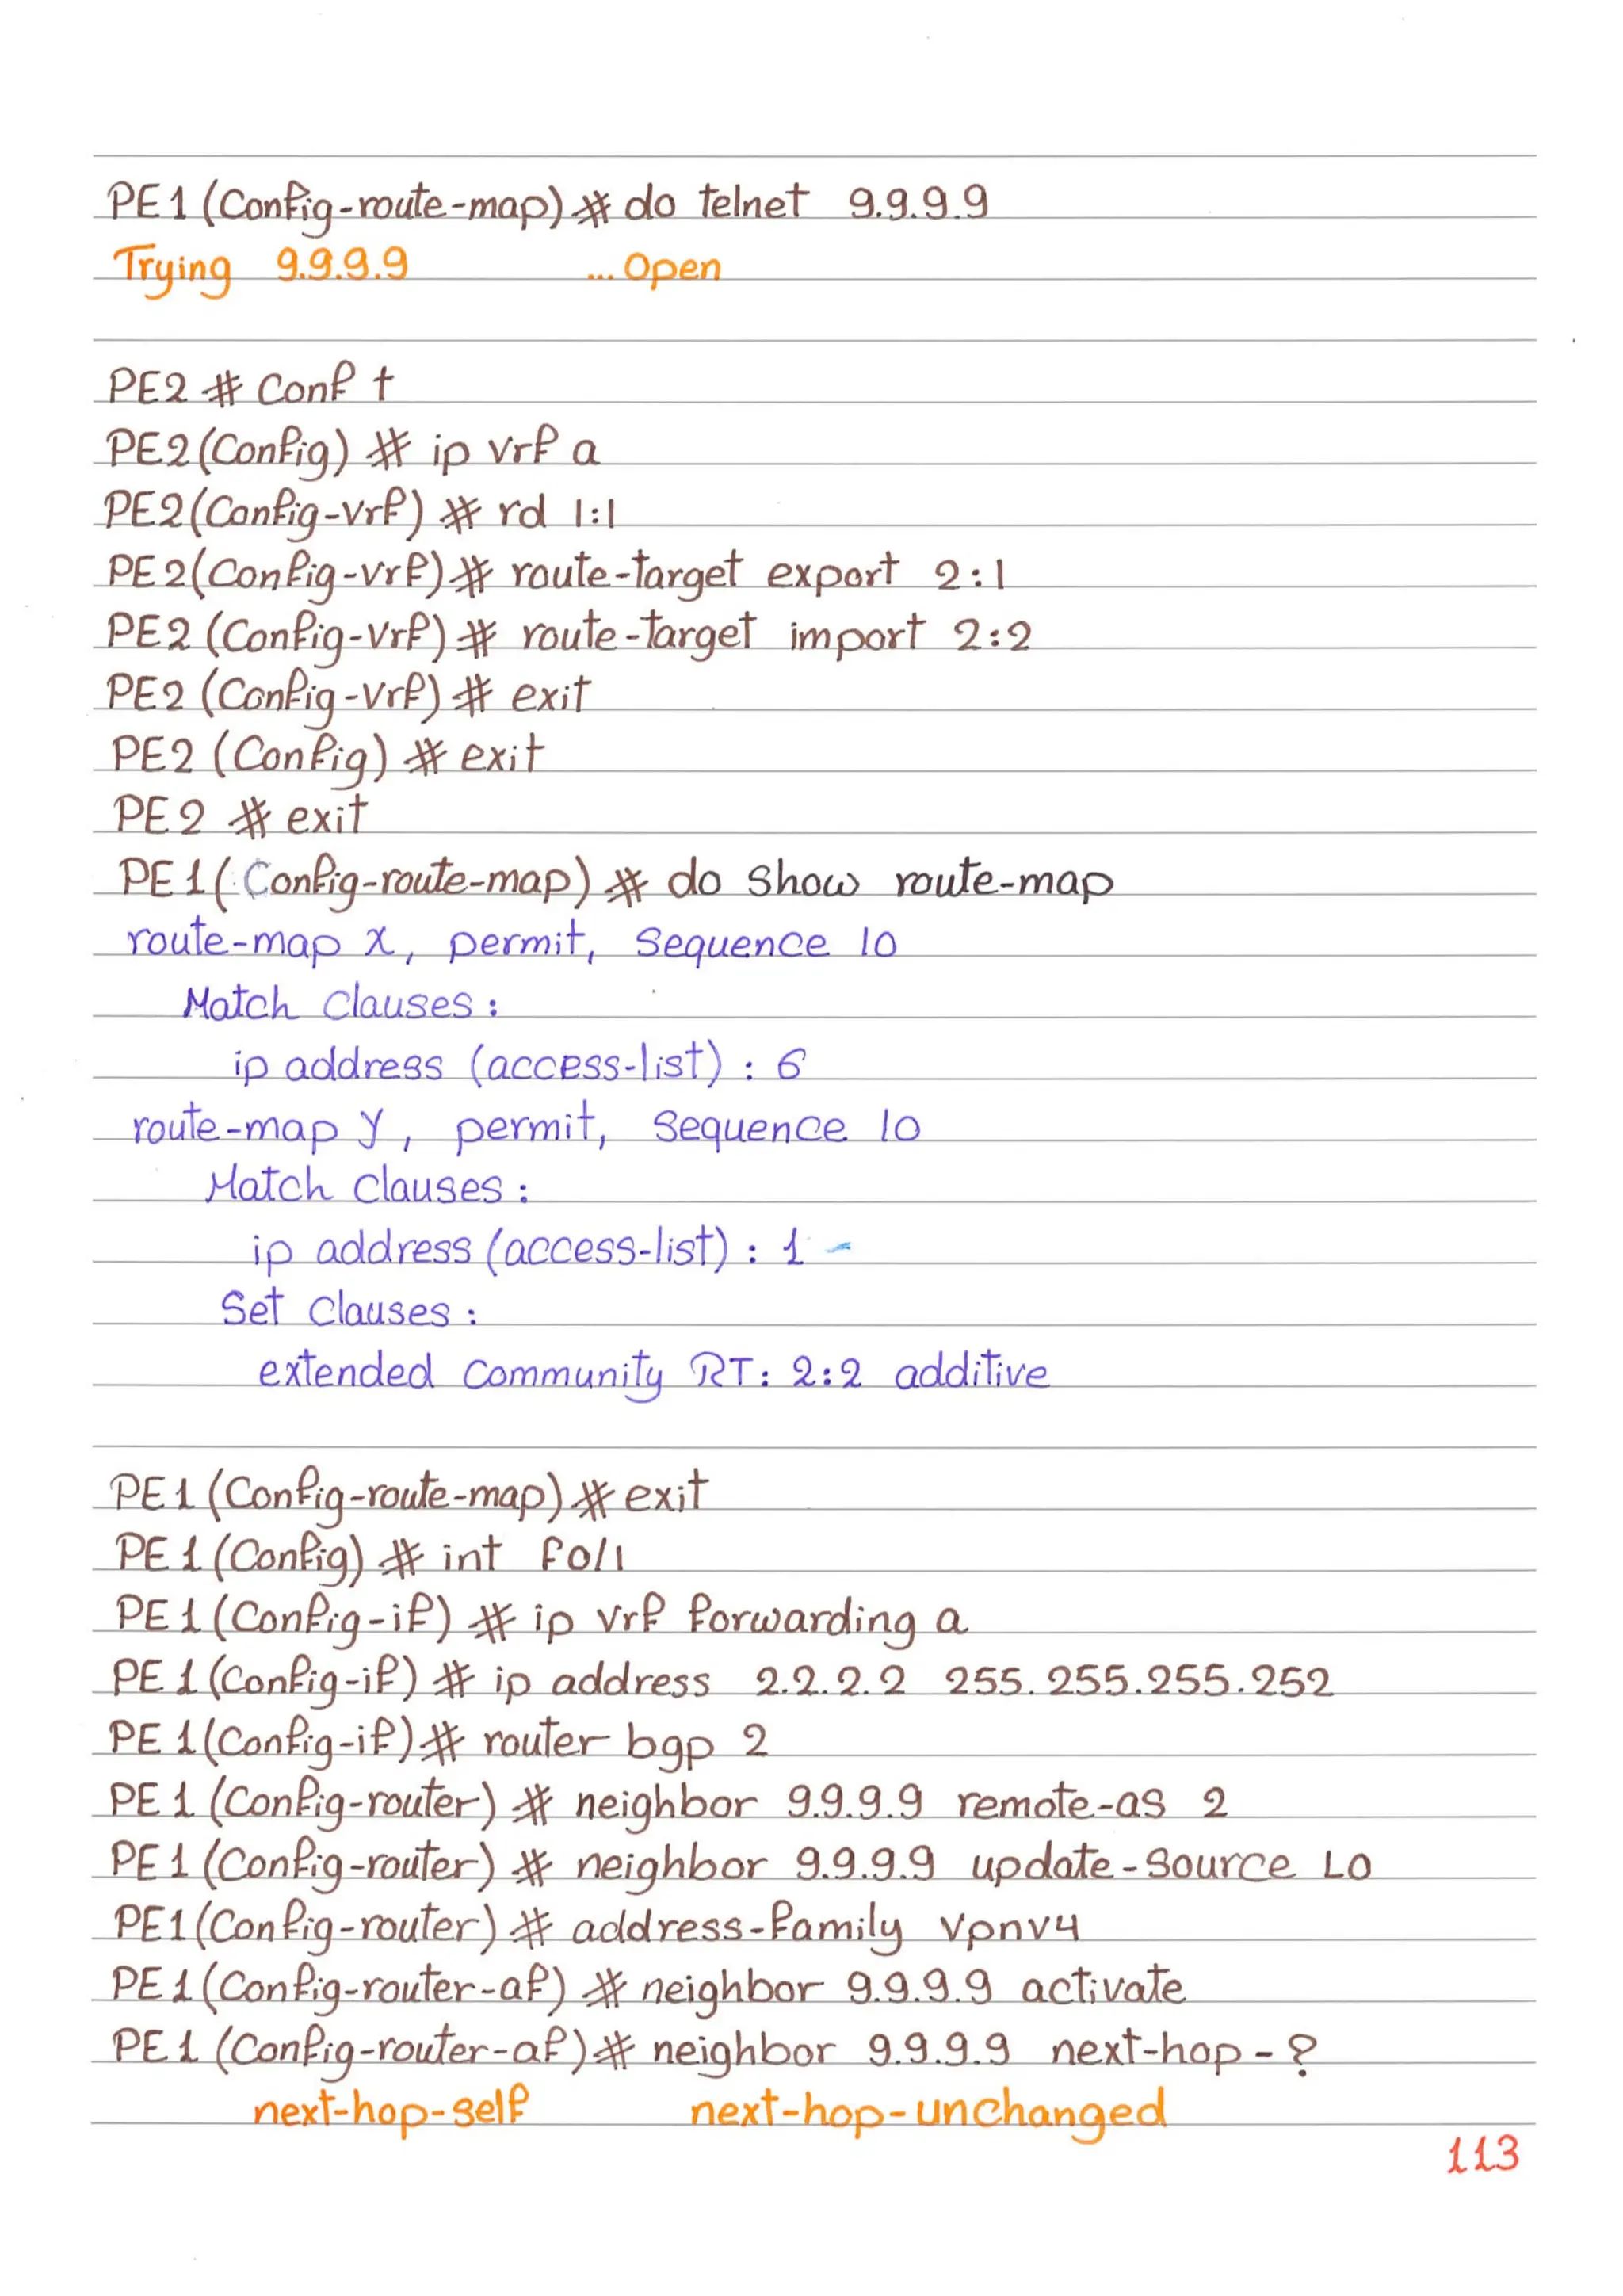 PE1 (Config-route-map) # do telnet 9.9.9.9
Trying 9.9.9.9 ... Open
PE2 # Conf t
PE2 (Config) # ip vrf a
PE2 (Config-vrf) # rd 1:1
PE2 (Config-vrf) # route-target export 2:1
PE2 (Config-vrf) # route-target import 2:2
PE2 (Config-vrf) # exit
PE2 (Config) # exit
PE2 # exit
PE1 (Config-route-map) # do show route-map
route-map x, permit, Sequence 10
Match Clauses :
ip address (access-list) : 6
route-map y, permit, Sequence 10
Match Clauses :
ip address (access-list) : 1
Set Clauses :
extended Community RT: 2:2 additive
PE1 (Config-route-map) # exit
PE1 (Config) # int fo/1
PE1 (Config-if) # ip vrf forwarding a
PE1 (Config-if) # ip address 2.2.2.2 255.255.255.252
PE1 (Config-if) # router bgp 2
PE1 (Config-router) # neighbor 9.9.9.9 remote-as 2
PE1 (Config-router) # neighbor 9.9.9.9 update-source L0
PE1 (Config-router) # address-family vpnv4
PE1 (Config-router-af) # neighbor 9.9.9.9 activate
PE1 (Config-router-af) # neighbor 9.9.9.9 next-hop-?
next-hop-self next-hop-unchanged
113